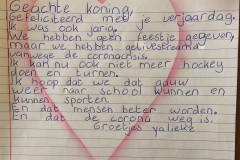 Geachte koning,
Gefeliciteerd met je verjaardag.
Ik was ook jarig.
We hebben geen feestje gegeven,
maar we hebben gelivestreamd
vanwege de coronacrisis.
Ik kan nu ook niet meer hockey
doen en turnen.
Ik hoop dat we dat gauw
weer naar school kunnen en
kunnen sporten.
En dat mensen beter worden.
En dat de corona weg is.
Groetjes